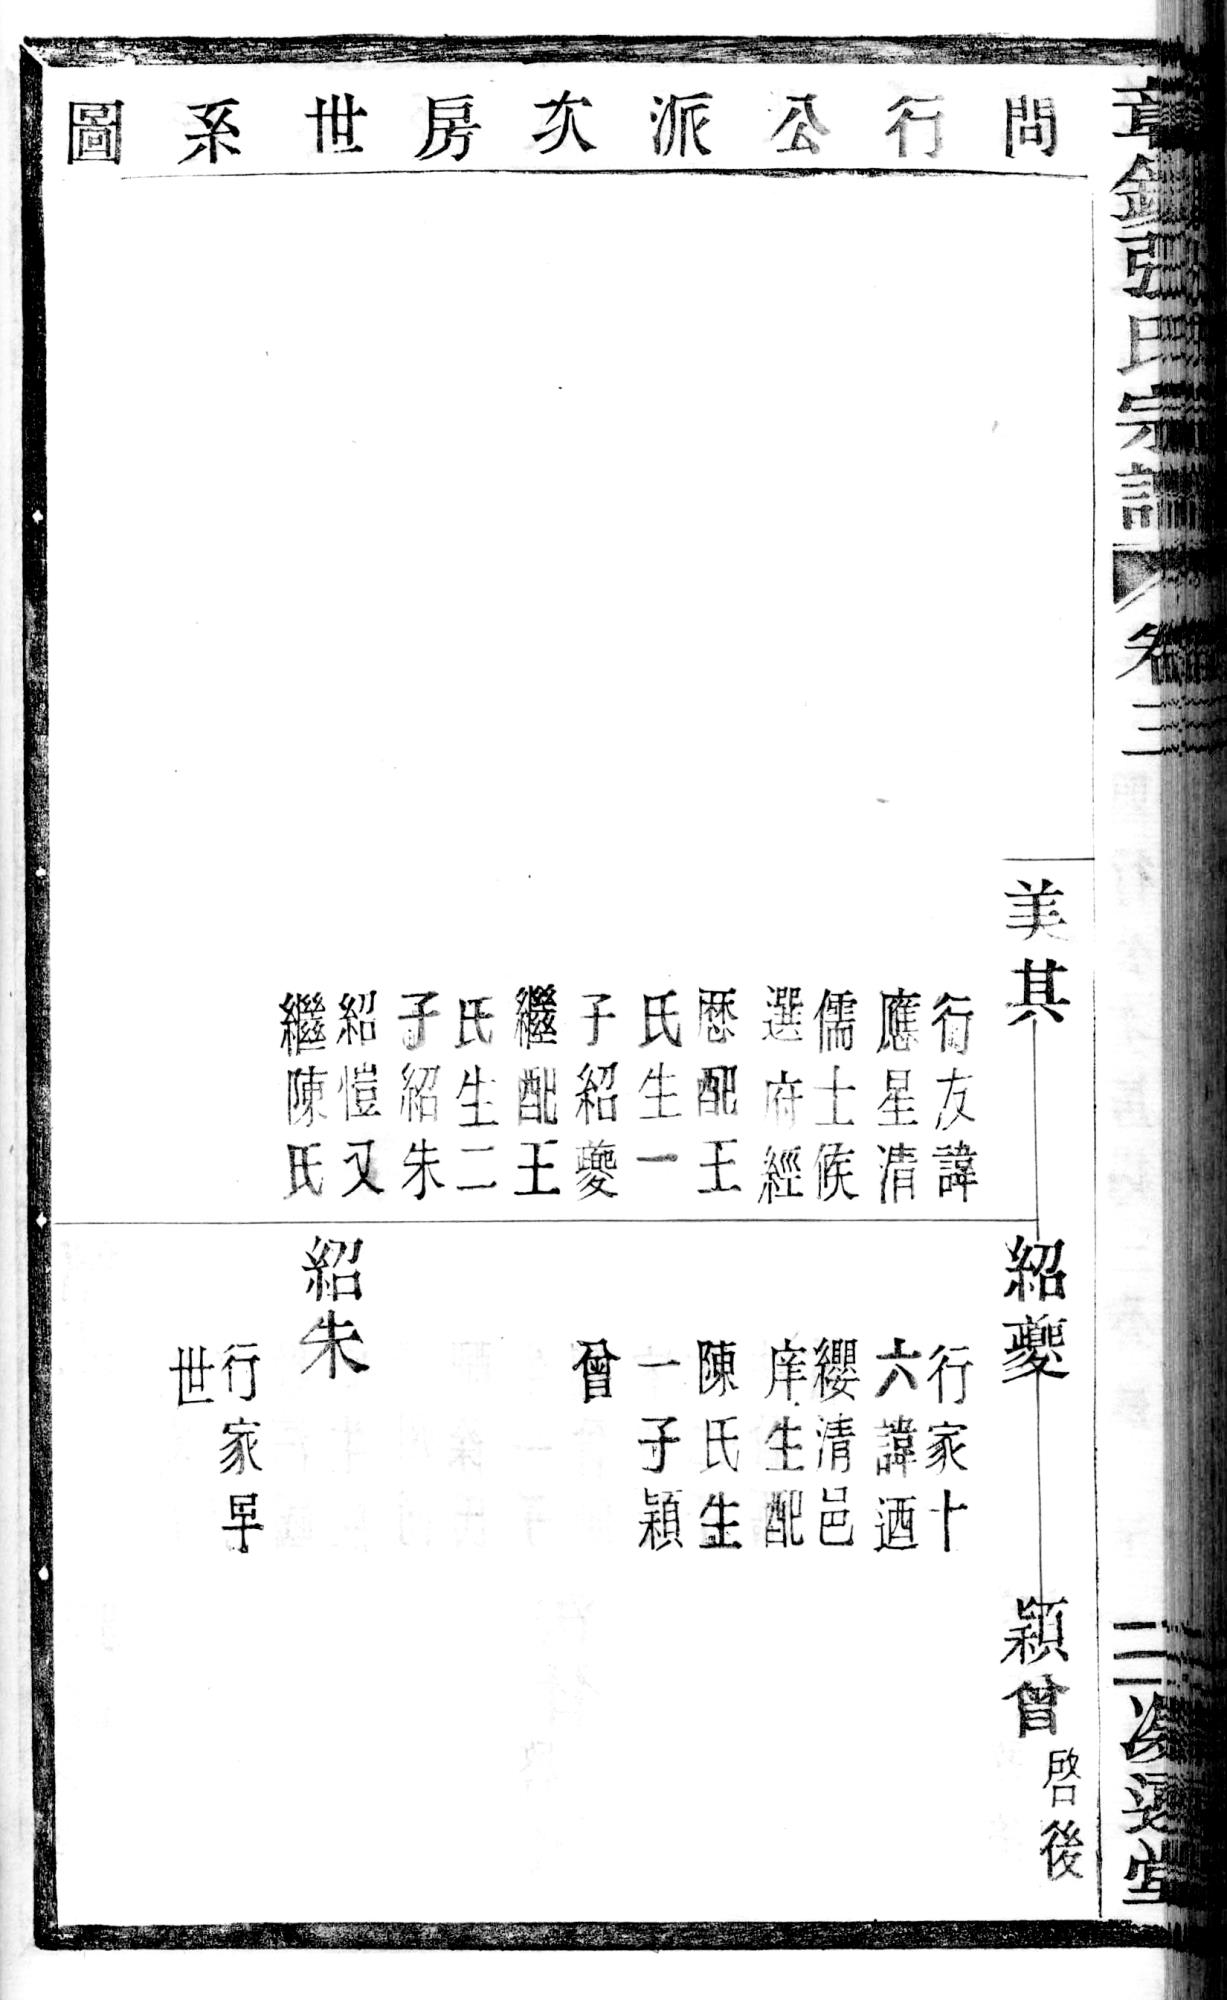 章鎮張氏宗譜 卷三
問行公派次房世系圖
美其
行友諱
應星清
儒士候
選府經
歷配王
氏生一
子紹夔
繼配王
氏生二
子紹朱
紹愷又
繼陳氏
紹夔
行家十
六諱迺
纓清邑
庠生配
陳氏生
一子穎
曾
紹朱
行家早
世
穎曾
啓後
二
堂